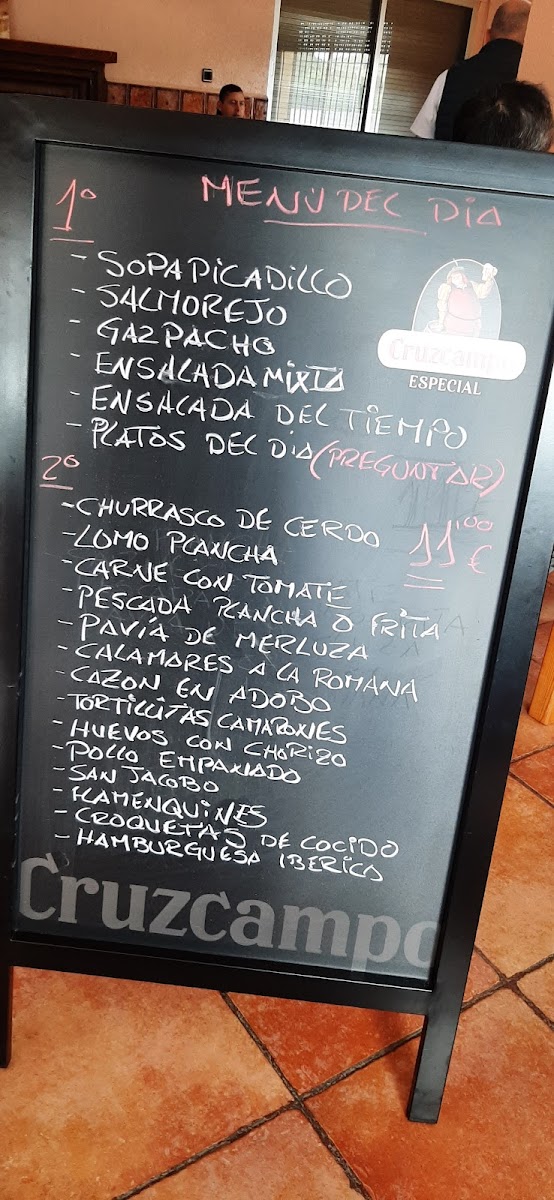 MENÚ DEL DIA
1º
- SOPA PICADILLO
- SALMOREJO
- GAZPACHO
- ENSALADA MIXTA
- ENSALADA DEL TIEMPO
- PLATOS DEL DIA (PREGUNTAR)
Cruzcampo
ESPECIAL
11'00 €
2º
- CHURRASCO DE CERDO
- LOMO PLANCHA
- CARNE CON TOMATE
- PESCADA PLANCHA O FRITA
- PAVÍA DE MERLUZA
- CALAMARES A LA ROMANA
- CAZON EN ADOBO
- TORTILLITAS CAMARONES
- HUEVOS CON CHORIZO
- POLLO EMPANADO
- SAN JACOBO
- FLAMENQUINES
- CROQUETAS DE COCIDO
- HAMBURGUESA IBERICA
Cruzcampo